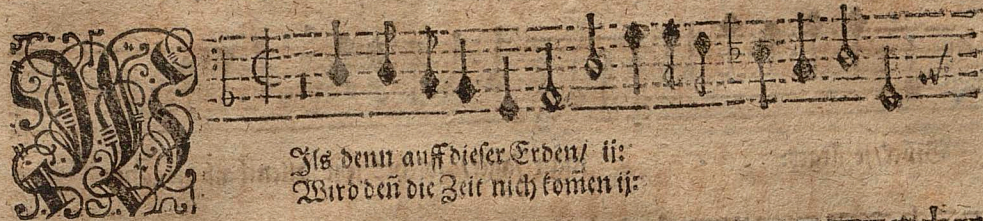 W
Ils denn auff dieser Erden/ ij:
Wird deñ die Zeit nich kom̃en ij: